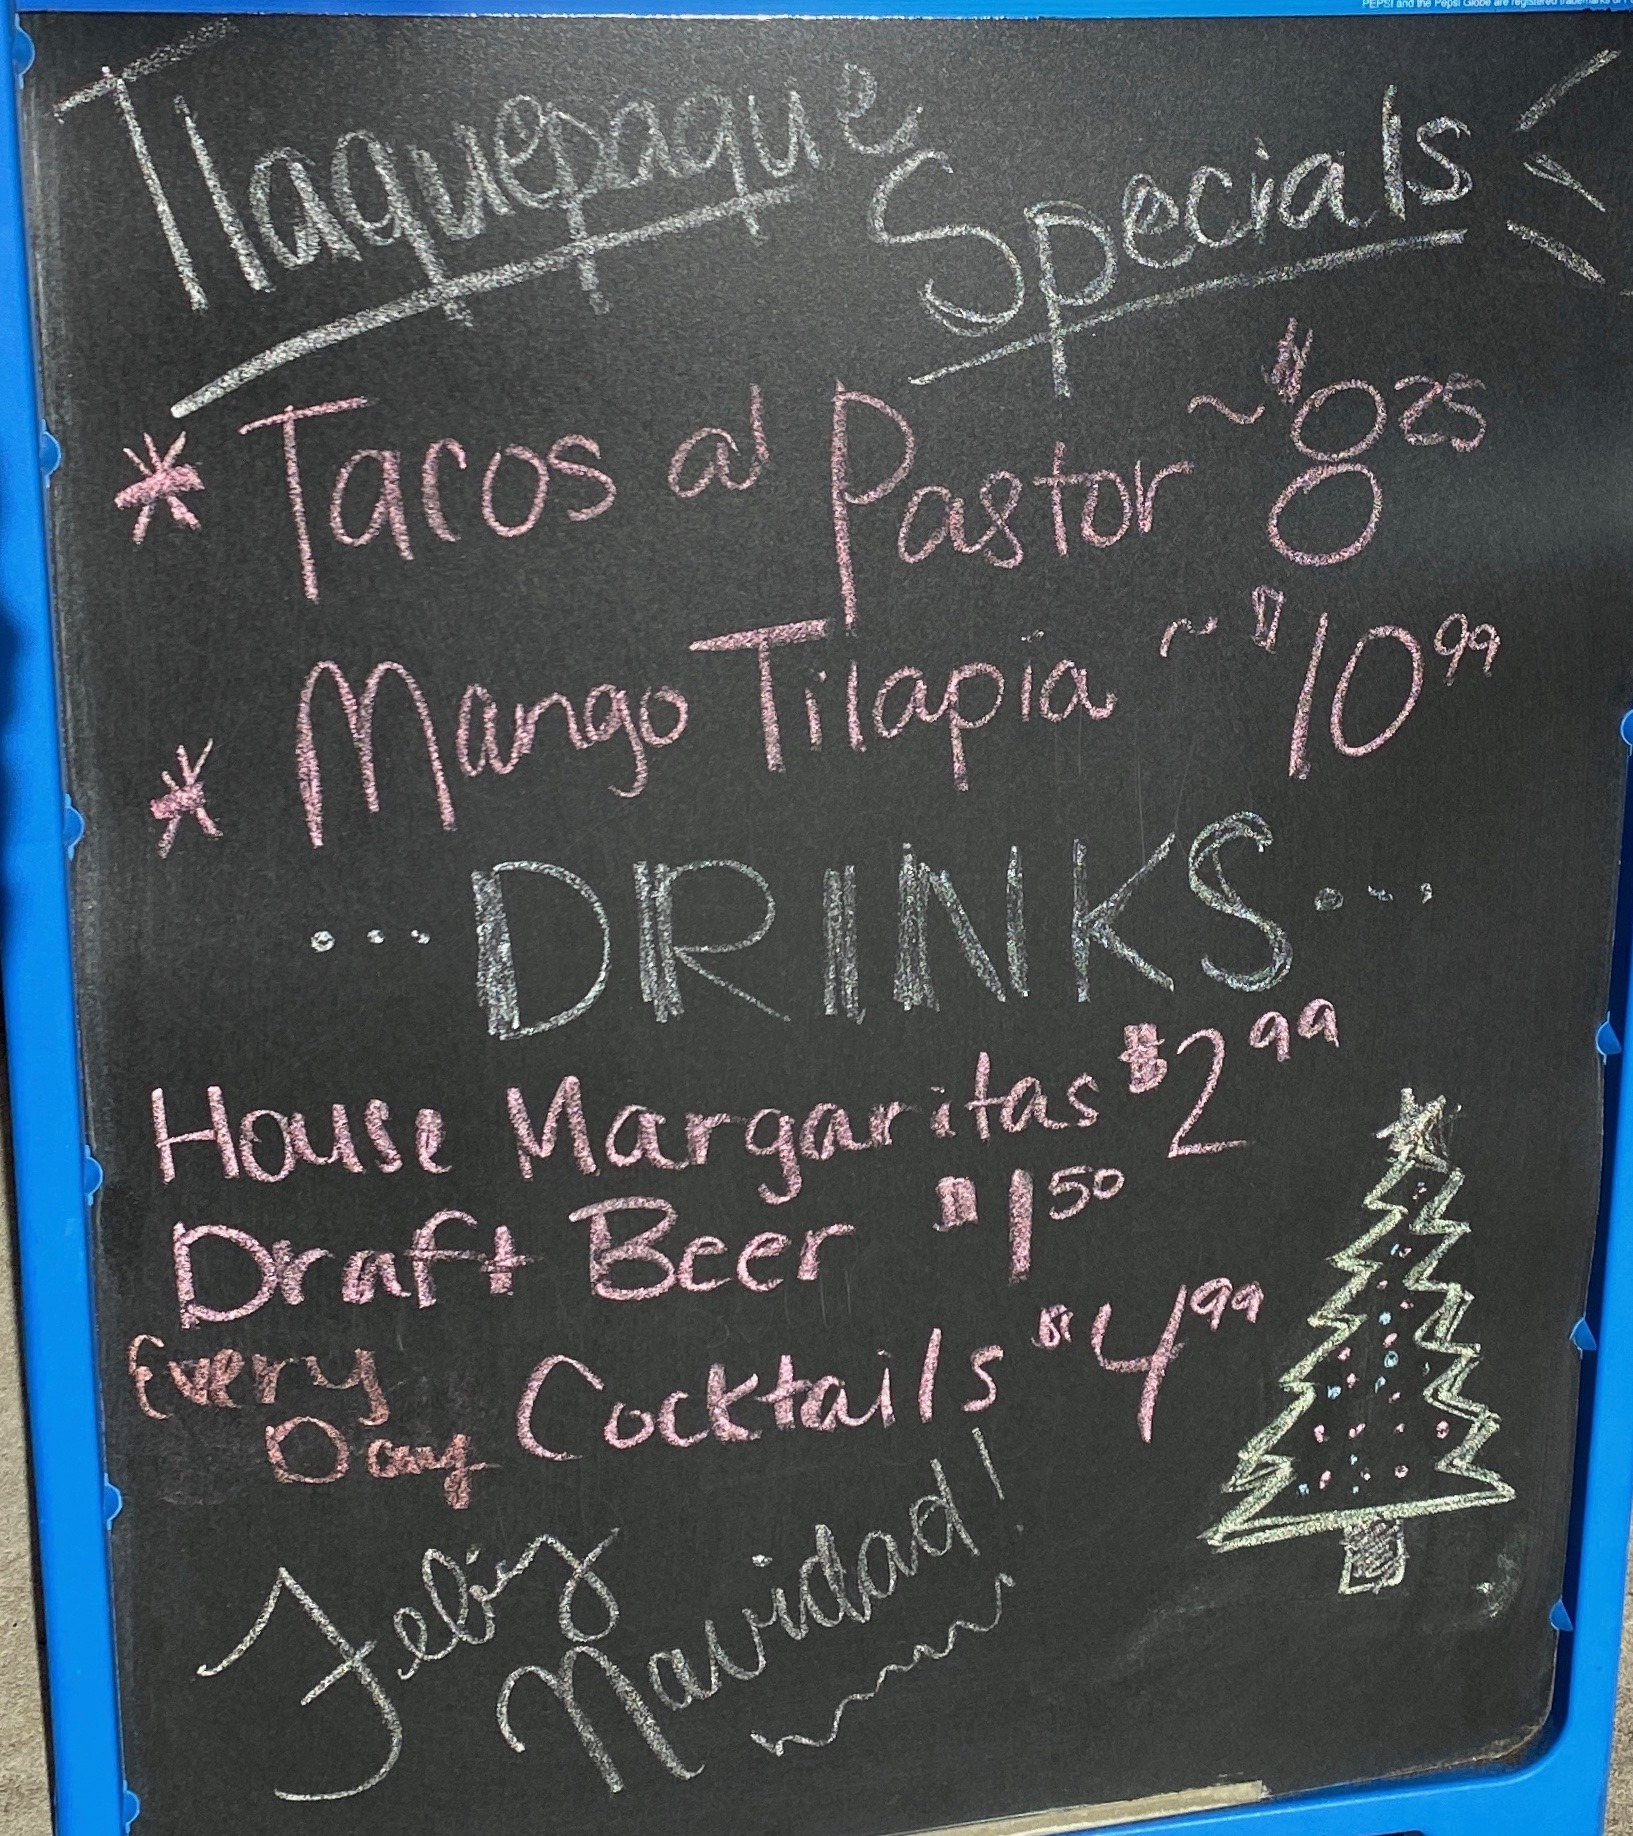 PEPSI and the Pepsi Globe are registered trademarks of
Tlaquepaque Specials
* Tacos al Pastor ~ $8.25
* Mango Tilapia ~ $10.99
... DRINKS ...
House Margaritas $2.99
Draft Beer $1.50
Every Day Cocktails $4.99
Feliz
Navidad!